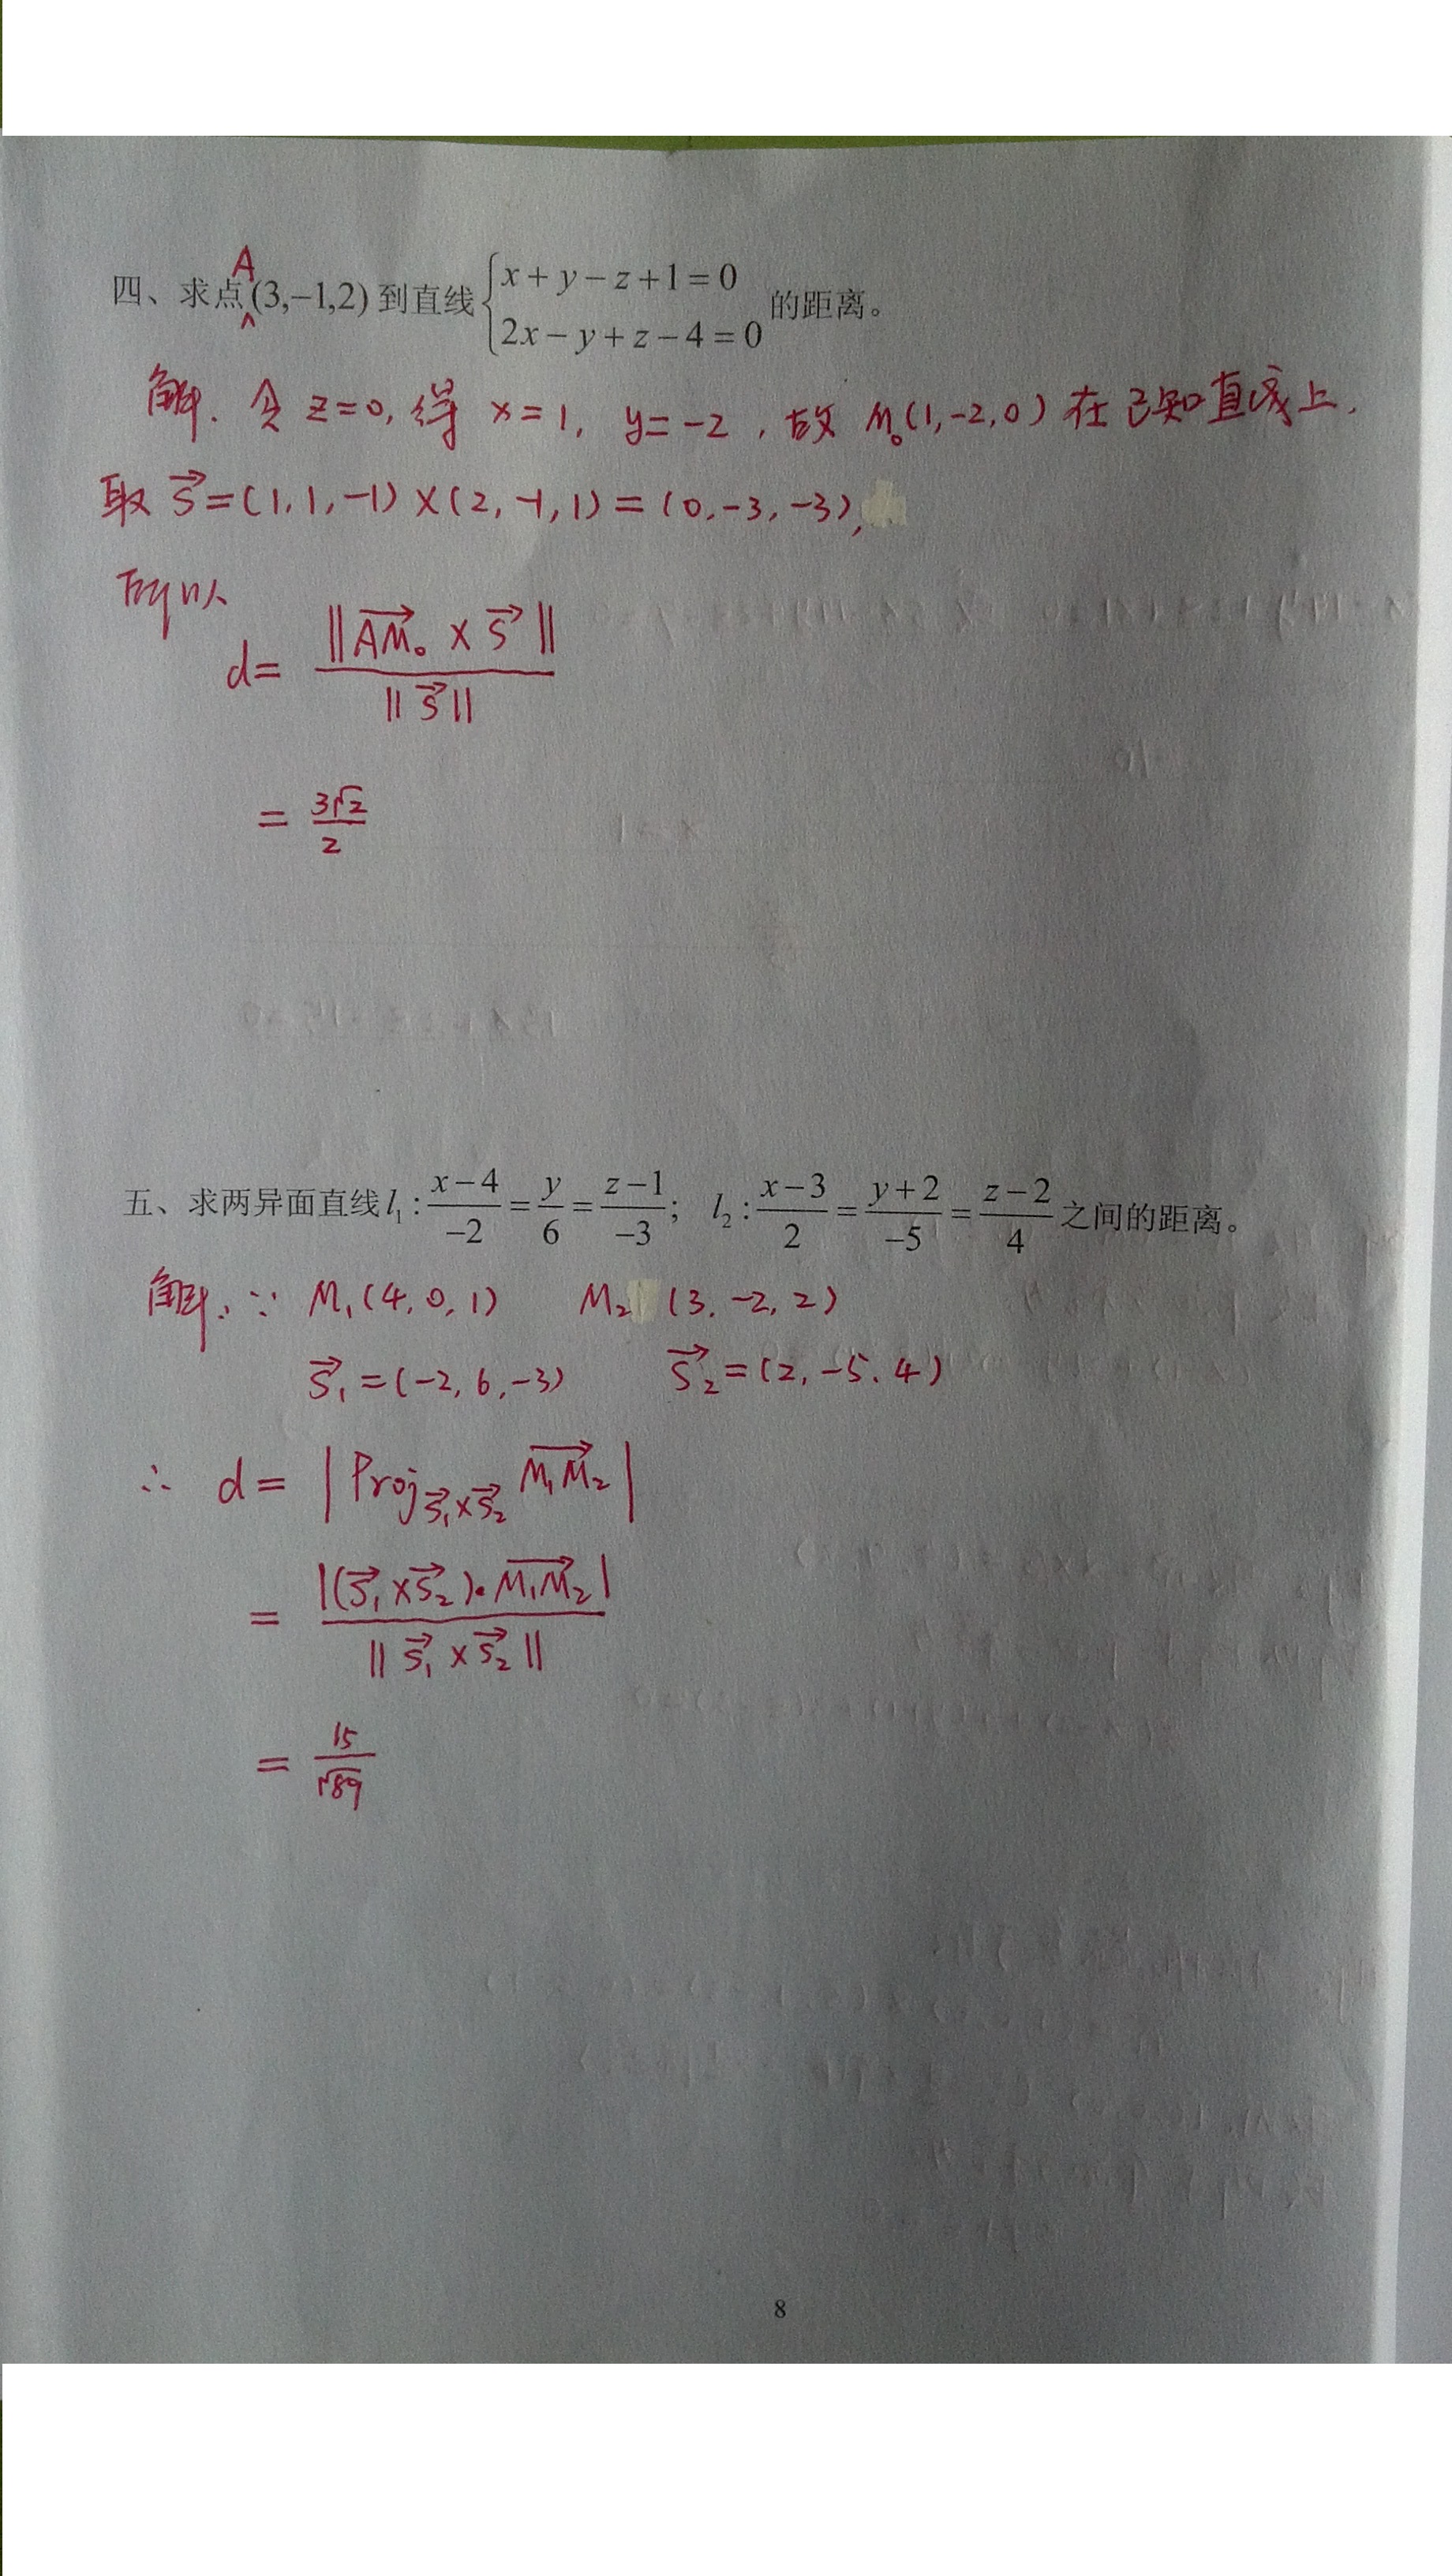 四、求点A(3,−1,2)到直线{x+y−z+1=0
2x−y+z−4=0 的距离。
解. 令 z=0, 得 x=1, y=-2, 故 M₀(1,-2,0) 在已知直线上,
取 s⃗=(1,1,-1)×(2,-1,1)=(0,-3,-3),
所以
d= ‖AM₀⃗ × s⃗‖ / ‖s⃗‖
= 3√2/2
五、求两异面直线 l₁: (x−4)/−2 = y/6 = (z−1)/−3; l₂: (x−3)/2 = (y+2)/−5 = (z−2)/4 之间的距离。
解. ∵ M₁(4,0,1) M₂(3,-2,2)
s⃗₁=(-2,6,-3) s⃗₂=(2,-5,4)
∴ d= |Proj_{s⃗₁×s⃗₂} M₁M₂⃗|
= |(s⃗₁×s⃗₂)·M₁M₂⃗| / ‖s⃗₁×s⃗₂‖
= 15/√89
8